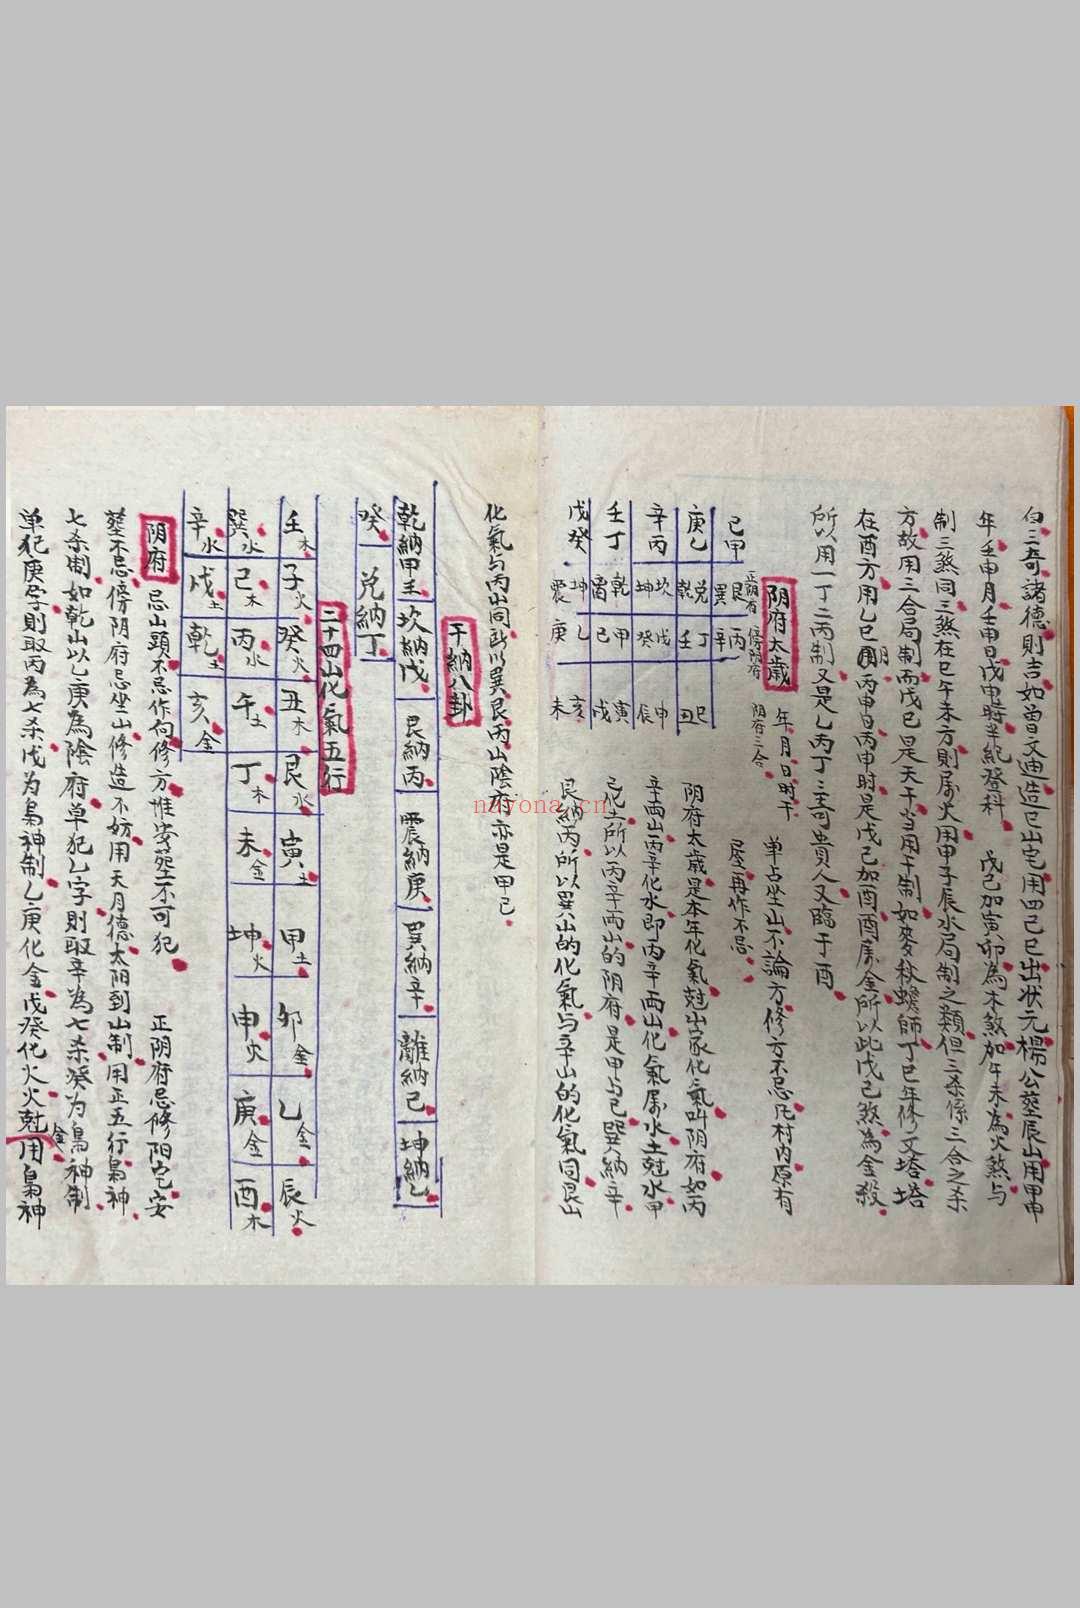 白三奇諸德則吉如曾文迪造巳山宅用四己巳出状元楊公塟辰山用甲申
年壬申月壬申日戊申時半紀登科 戊己加寅卯為木煞加午未為火煞与
制三煞同三煞在巳午未方則属火用申子辰水局制之類但三杀係三合之杀
方故用三合局制而戊己是天干当用干制如麥秋蟾師丁巳年修文塔塔
在酉方用乙巳月丙申日丙申时是戊己加酉酉属金所以此戊己煞為金殺
所以用一丁二丙制又是乙丙丁三奇貴人又臨于酉
阴府太歳 年月日时干 单占坐山不論方修方不忌凡村内原有
正阴府 傍阴府 阴府三合 屋再作不忌
己甲 艮巽 丙辛
庚乙 兌乾 丁壬 巳丑
辛丙 坎坤 戊癸 申辰
壬丁 乾 甲己 寅戌
戊癸 坤震 乙庚 亥未
阴府太歳是本年化氣尅山家化氣叫阴府如丙
辛両山丙辛化水即丙辛両山化氣属水土尅水甲
己化土所以丙辛両山的阴府是甲与己巽納辛
艮納丙所以巽山的化氣与辛山的化氣同艮山
化氣与丙山同所以巽艮丙山陰府亦是甲己
干納八卦
乾納甲壬 坎納戊 艮納丙 震納庚 巽納辛 離納己 坤納乙
癸 兌納丁
二十四山化氣五行
壬木 子火 癸火 丑木 艮水 寅土 甲土 卯金 乙金 辰火
巽水 巳木 丙水 午土 丁木 未金 坤火 申火 庚金 酉木
辛水 戌土 乾土 亥金
阴府 忌山頭不忌作向修方惟安塟不可犯 正阴府忌修阳宅安
塟不忌傍阴府忌坐山修造不妨用天月德太阳到山制用正五行梟神
七杀制如乾山以乙庚為陰府单犯乙字則取辛為七杀癸为梟神制
单犯庚字則取丙為七杀戊为梟神制乙庚化金戊癸化火火尅金用梟神